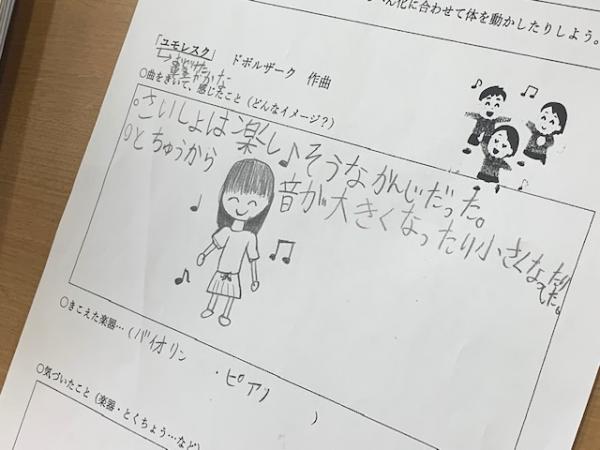 ん化に合わせて体を動かしたりしよう。
「ユモレスク」　ドボルザーク　作曲
→おどけた
○曲をきいて、感じたこと（どんなイメージ？）
○さいしょは楽し♪そうなかんじだった。
○とちゅうから　音が大きくなったり小さくなったり
してた。
○きこえた楽器…（バイオリン　・ピアノ　）
○気づいたこと（楽器・とくちょう…など）